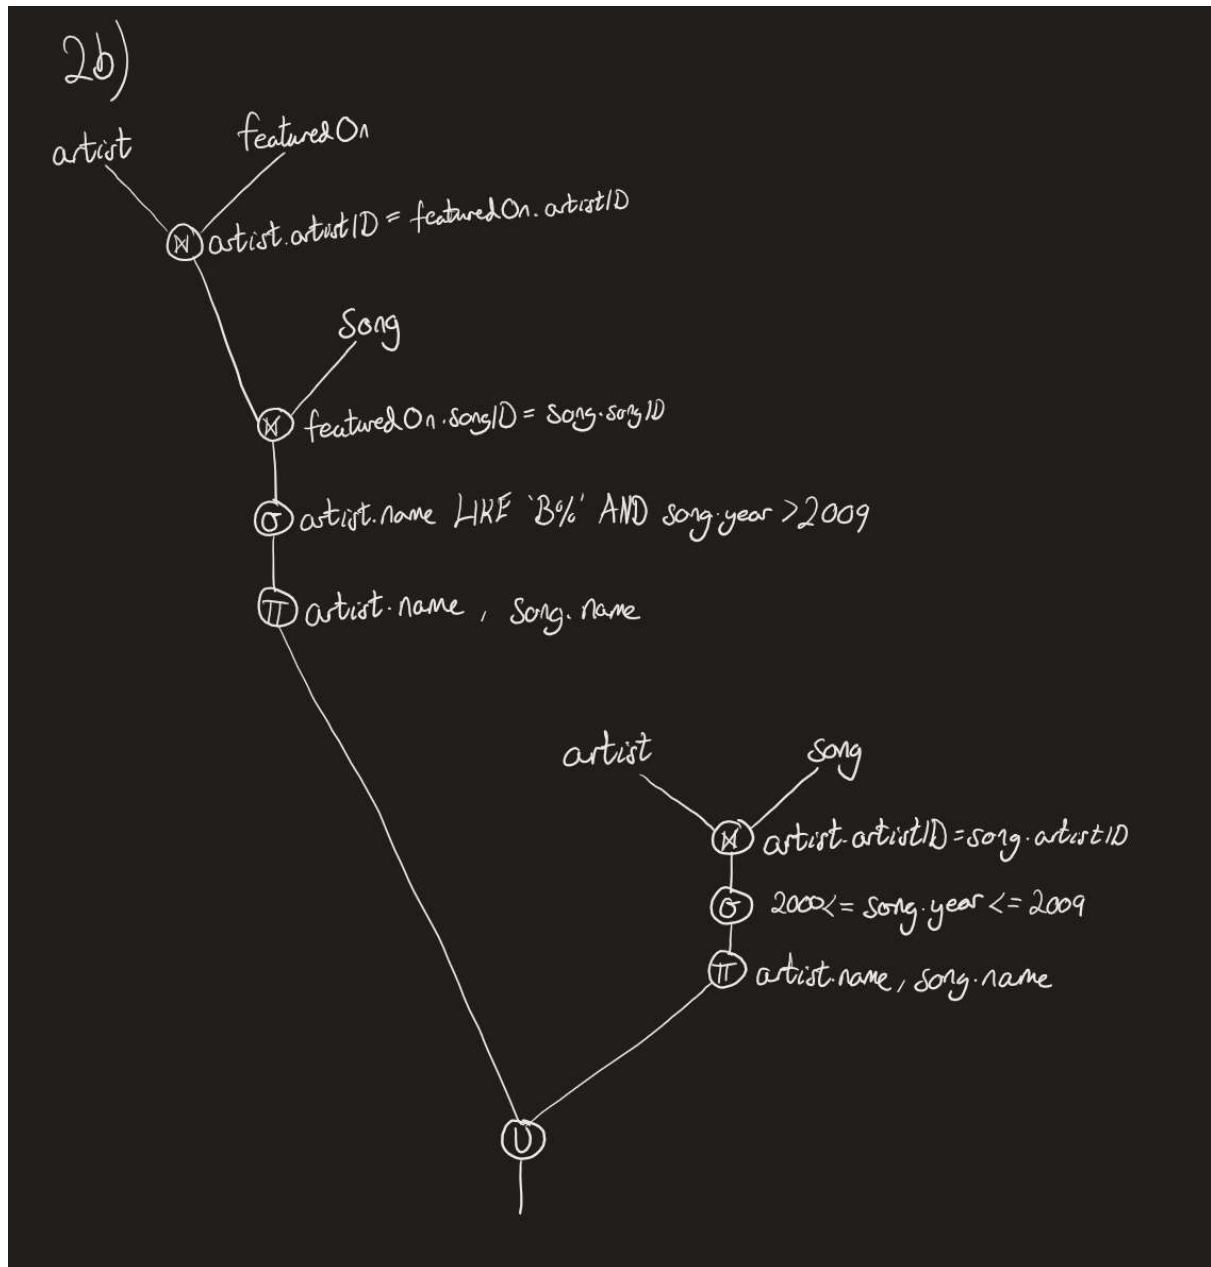 2b)
artist featuredOn
⋈ artist.artistID = featuredOn.artistID
Song
⋈ featuredOn.songID = song.songID
σ artist.name LIKE 'B%' AND song.year >2009
π artist.name, song.name
artist song
⋈ artist.artistID=song.artistID
σ 2000<= song.year <= 2009
π artist.name, song.name
U